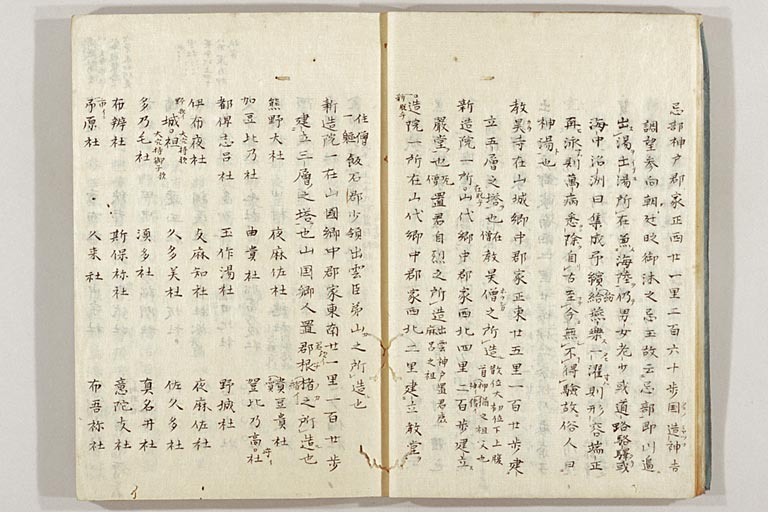 忌部神戸郡家正西廿一里二百六十歩国造神吉
調望参向朝廷時御沐之忌玉故云忌部即川邊
出湯出湯所在兼海陸仍男女老少或道路駱驛或
海中沿洲日集成市繽紛燕樂一濯則形容端正
再泳則萬病悉除自古至今無不得驗故俗人曰
神湯也
教昊寺在山城郷中郡家正東廿五里一百廿歩建
立五層之塔也在僧教昊僧之所造散位大初位下上腹首押猪之祖父也
新造院一所山代郷中郡家西北四里二百歩建立
嚴堂也僧置君自烈之所造出雲神戸置君鹿麻呂之祖
造院一所在山代郷中郡家西北二里建立教堂
住僧一軀飯石郡少領出雲臣弟山之所造也
新造院一在山國郷中郡家東南廿一里一百廿歩
建立三層之塔也山国郷人置郡根猪之所造也
熊野大社 夜麻佐社 賣豆貴社
加豆比乃社 由貴社 比乃高社
都俾志呂社 玉作湯社 野城社
伊布夜社 支麻知社 夜麻佐社
城社 久多美社 佐久多社
多乃毛社 須多社 真名井社
布辨社 斯保祢社 意陀支社
原社 久米社 布吾祢社